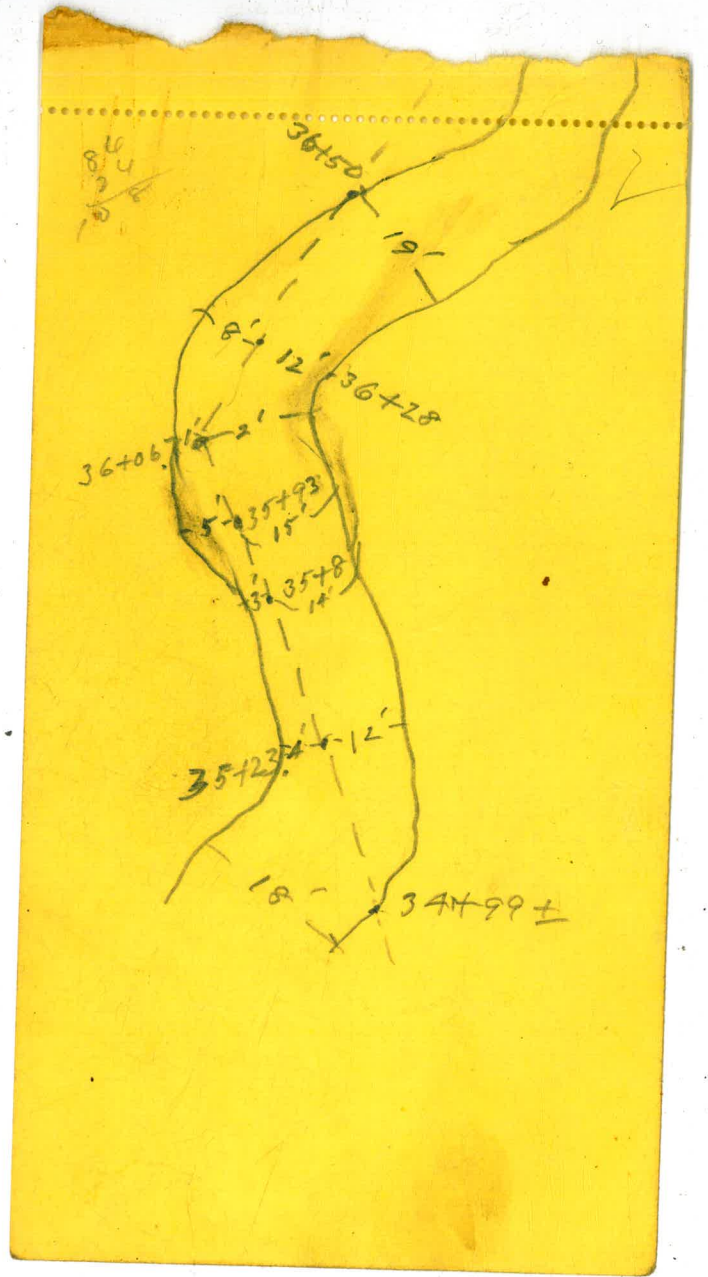 2
36+50
19'
8' 12'
36+28
36+06 1' 2'
5' 35+93
15'
3' 35+8
14'
35+23 4' 12'
18
34+99 ±